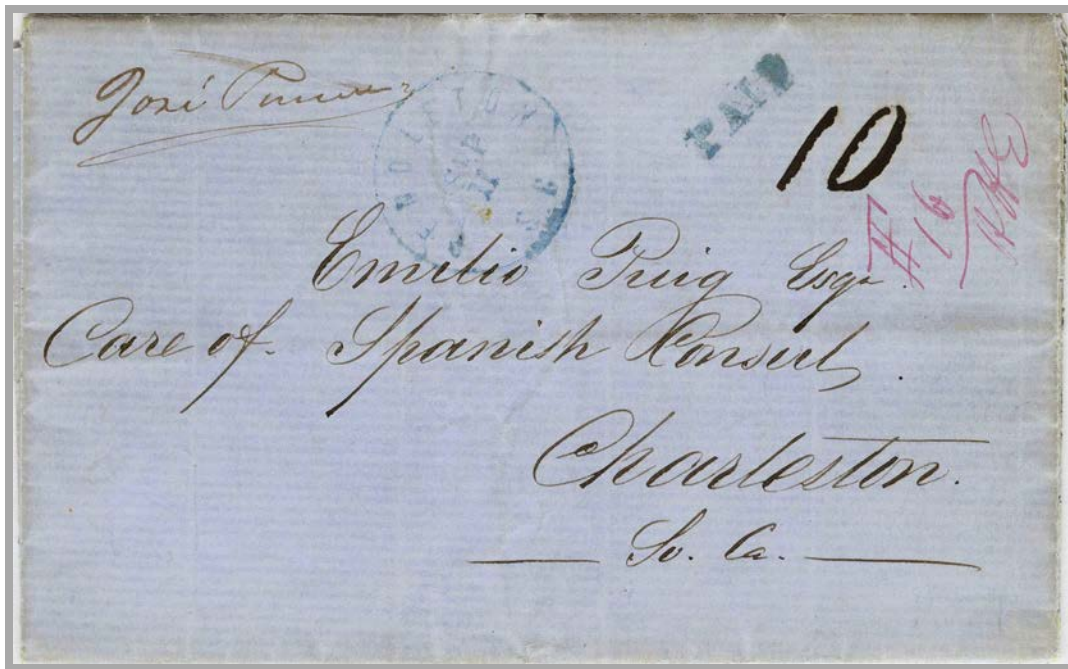 José
SEP
11
PAID
10
#16
Emilio Puig Esqr.
Care of. Spanish Consul,
Charleston.
So. Ca.